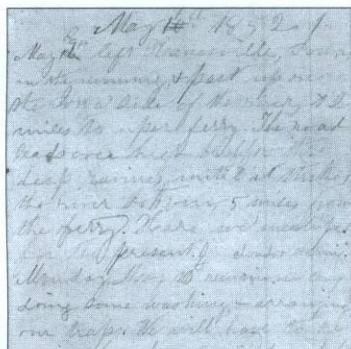 May 1852
May left Kanesville, Iowa,
in the morning, & past up on
the Iowa side of the river, 12
miles to uper ferry. The road
leads over high bluffs &
deep ravines, until it strikes
the river bottom, 5 miles from
the ferry. Heare we encamp
for the present.
Monday May 10 remain in camp
doing some washing & arranging
our traps. We will have to